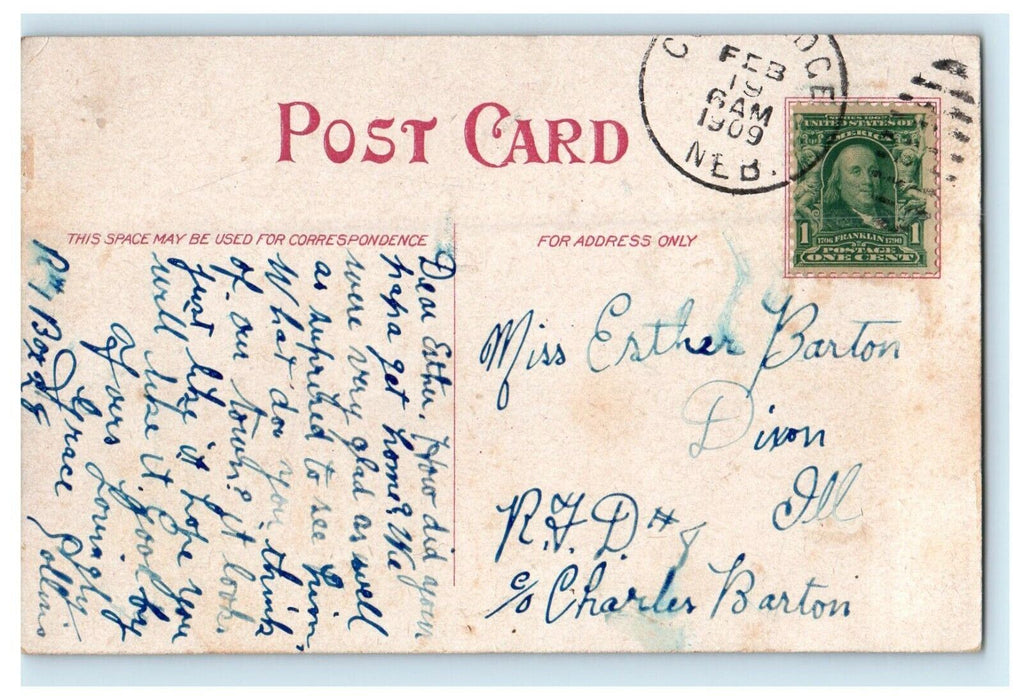 POST CARD
THIS SPACE MAY BE USED FOR CORRESPONDENCE
FOR ADDRESS ONLY
FEB
19
6 AM
1909
NEB.
UNITED STATES OF
AMERICA
1 1706 FRANKLIN 1790 1
POSTAGE
ONE CENT
Dear Esther, How did your
papa get home? We
were very glad as well
as suprised to see him.
What do you think
of our town? It look
just like it hope you
will like it. Good by
Yours Lovingly
Grace Collins
Box 28
Miss Esther Barton
Dixon
Ill
R.F.D #
c/o Charles Barton